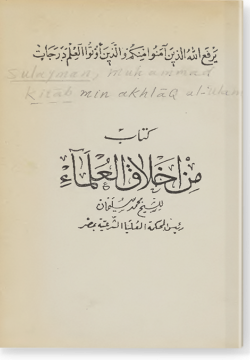 يرفع الله الذين آمنوا منكم والذين أوتوا العلم درجات
Sulaymān, Muhammad
Kitāb min akhlāq al-'ulam
كتاب
من أخلاق العلماء
للشيخ محمد سليمان
رئيس المحكمة العليا الشرعية بمصر